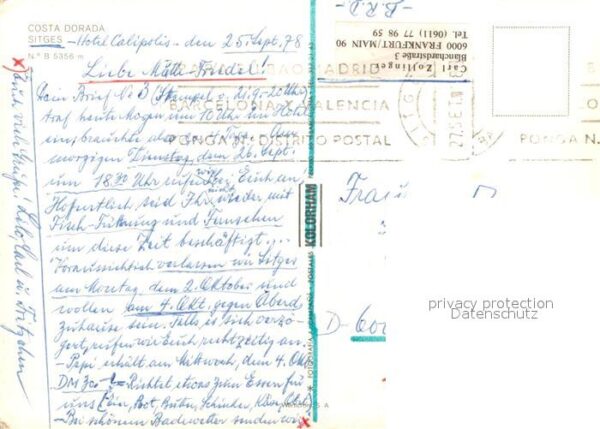 COSTA DORADA
SITGES - Hotel Calipolis - den 25. Sept. 78
N.º B 5356 m
Liebe Mutti-Friedel!
Dein Brief Nº 3 (Stempel v. 21.9.-20 Uhr)
traf heute Morgen um 10 Uhr im Hotel
ein, brauchte also 4 Tage. Am
morgigen Dienstag, den 26. Sept.
um 18.30 Uhr rufen wir bei Euch an!
Hoffentlich seid Ihr nicht wieder mit
Fisch-Fütterung und Fernsehen
um diese Zeit beschäftigt...
Voraussichtlich verlassen wir Sitges
am Montag, dem 2. Oktober und
wollen am 4. Okt. gegen Abend
zuhause sein. Falls es sich verzö-
gert, rufen wir Euch rechtzeitig an.
- Papi erhält am Mittwoch, dem 4. Okt.
DM 30.- Richtet etwas zum Essen für
uns (Eier, Brot, Butter, Schinken, Käse, Obst)
- Bei schönem Badewetter senden wir
Euch viele Grüße! Lilo, Carl u. Fritzchen
- B.R.D -
Carl Zojlinger
Blanchardstraße 3
6000 FRANKFURT/MAIN 90
Tel. (0611) 77 98 59
MADRID
BARCELONA X VALENCIA
PONGA N.º DISTRITO POSTAL
PONGA N.º
KOLORHAM
Frau
D-600
privacy protection
Datenschutz